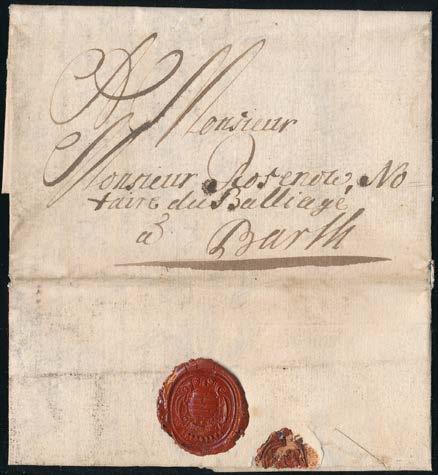 A Monsieur
Monsieur Rosenow, No-
taire du Balliage,
a Barth